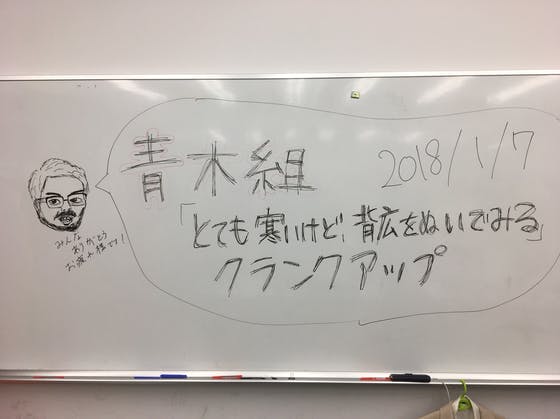 青木組
2018/1/7
「とても寒いけど、背広をぬいでみる」
クランクアップ
みんな
ありがとう
お疲れ様です!